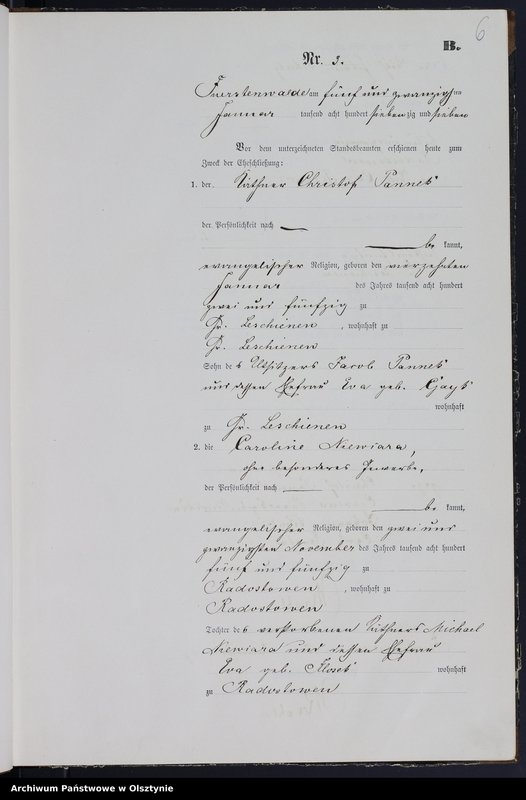 6
B.
Nr. 5.
Fuerstenwalde am fünf und zwanzigsten
Januar tausend acht hundert siebenzig und sieben
Vor dem unterzeichneten Standesbeamten erschienen heute zum
Zweck der Eheschließung:
1. der Käthner Christof
der Persönlichkeit nach
be kannt,
evangelischer Religion, geboren den vierzehnten
Januar des Jahres tausend acht hundert
zwei und fünfzig zu
Gr. Leschienen, wohnhaft zu
Gr. Leschienen
Sohn des Altsitzers Jacob
und dessen Ehefrau Eva geb.
wohnhaft
zu Gr. Leschienen
2. die Caroline Niewiara,
ohne besonderes Gewerbe,
der Persönlichkeit nach
be kannt,
evangelischer Religion, geboren den zwei und
zwanzigsten November des Jahres tausend acht hundert
fünf und fünfzig zu
Radostowen, wohnhaft zu
Radostowen
Tochter des verstorbenen Käthners Michael
Niewiara und dessen Ehefrau
Eva geb. wohnhaft
zu Radostowen
Archiwum Państwowe w Olsztynie